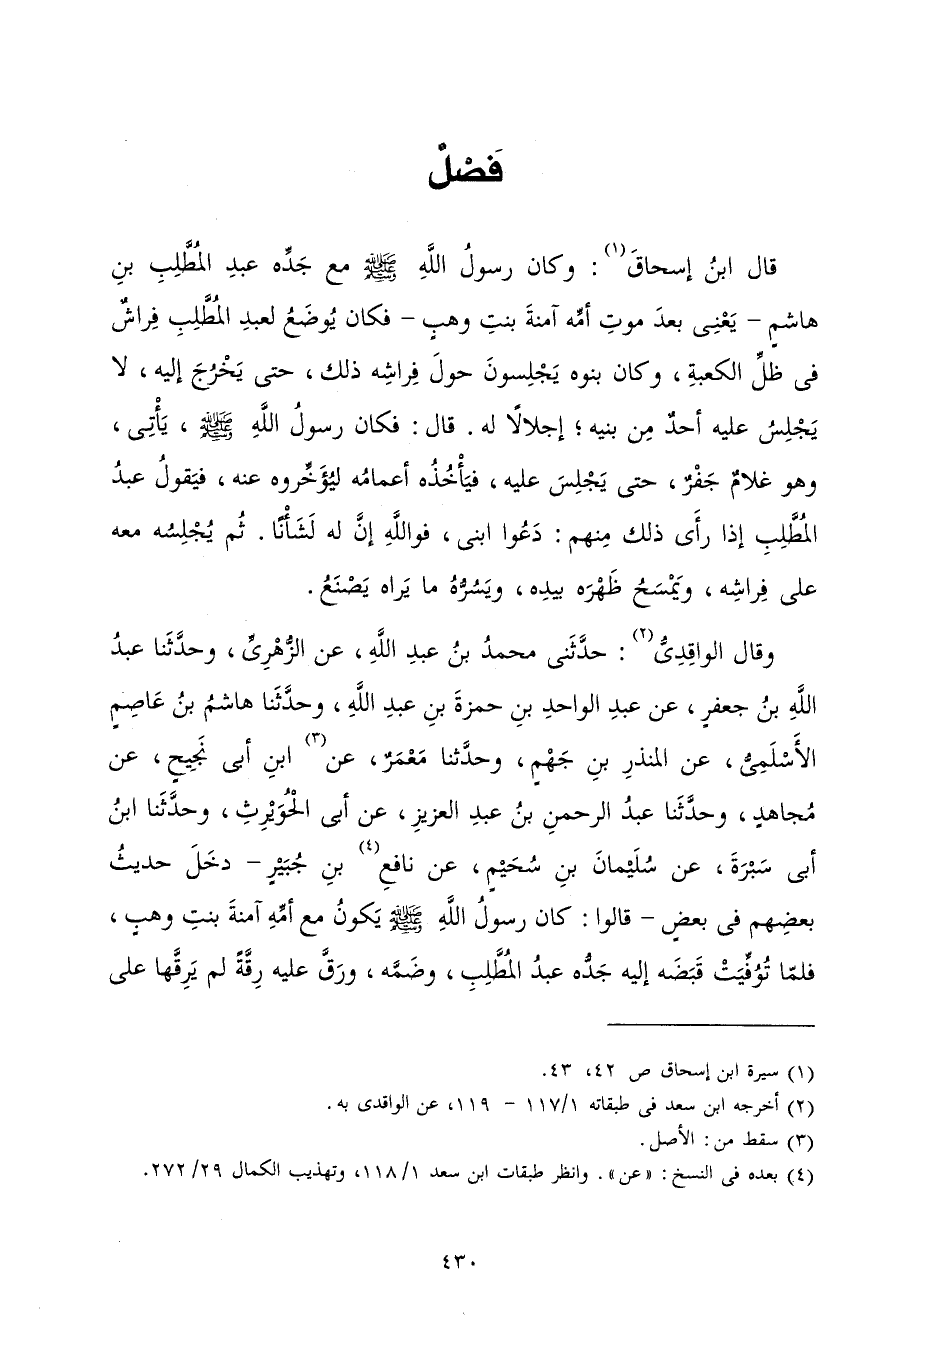 فَصْلٌ
قال ابنُ إسحاقَ(١) : وكان رسولُ اللَّهِ ﷺ مع جَدِّه عبدِ المُطَّلِبِ بنِ
هاشمٍ – يَعْنِى بعدَ موتِ أمِّه آمنةَ بنتِ وهبٍ – فكان يُوضَعُ لعبدِ المُطَّلِبِ فِراشٌ
فى ظلِّ الكعبةِ ، وكان بنوه يَجْلِسونَ حولَ فِراشِه ذلك ، حتى يَخْرُجَ إليه ، لا
يَجْلِسُ عليه أحدٌ مِن بنيه ؛ إجلالًا له . قال : فكان رسولُ اللَّهِ ﷺ ، يَأْتِى ،
وهو غلامٌ جَفْرٌ ، حتى يَجْلِسَ عليه ، فيَأْخُذُه أعمامُه ليُؤَخِّروه عنه ، فيَقولُ عبدُ
المُطَّلِبِ إذا رأَى ذلك مِنهم : دَعُوا ابنى ، فواللَّهِ إنَّ له لَشَأْنًا . ثُم يُجْلِسُه معه
على فِراشِه ، ويَمْسَحُ ظَهْرَه بيدِه ، ويَسُرُّهُ ما يَراه يَصْنَعُ .
وقال الواقِدِىُّ(٢) : حدَّثَنى محمدُ بنُ عبدِ اللَّهِ ، عن الزُّهْرِىِّ ، وحدَّثَنا عبدُ
اللَّهِ بنُ جعفرٍ ، عن عبدِ الواحدِ بنِ حمزةَ بنِ عبدِ اللَّهِ ، وحدَّثَنا هاشمُ بنُ عَاصِمٍ
الأَسْلَمِىُّ ، عن المنذرِ بنِ جَهْمٍ ، وحدَّثنا مَعْمَرٌ ، عن(٣) ابنِ أبى نَجِيحٍ ، عن
مُجاهدٍ ، وحدَّثَنا عبدُ الرحمنِ بنُ عبدِ العزيزِ ، عن أبى الحُوَيْرِثِ ، وحدَّثَنا ابنُ
أبى سَبْرَةَ ، عن سُلَيْمانَ بنِ سُحَيْمٍ ، عن نافعِ(٤) بنِ جُبَيْرٍ – دخَلَ حديثُ
بعضِهم فى بعضٍ – قالوا : كان رسولُ اللَّهِ ﷺ يَكونُ مع أمِّهِ آمنةَ بنتِ وهبٍ ،
فلمّا تُوُفِّيَتْ قَبَضَه إليه جَدُّه عبدُ المُطَّلِبِ ، وضَمَّه ، ورَقَّ عليه رِقَّةً لم يَرِقَّها على
(١) سيرة ابن إسحاق ص ٤٢، ٤٣.
(٢) أخرجه ابن سعد فى طبقاته ١١٧/١ – ١١٩، عن الواقدى به .
(٣) سقط من : الأصل .
(٤) بعده فى النسخ : «عن» . وانظر طبقات ابن سعد ١١٨/١، وتهذيب الكمال ٢٧٢/٢٩.
٤٣٠